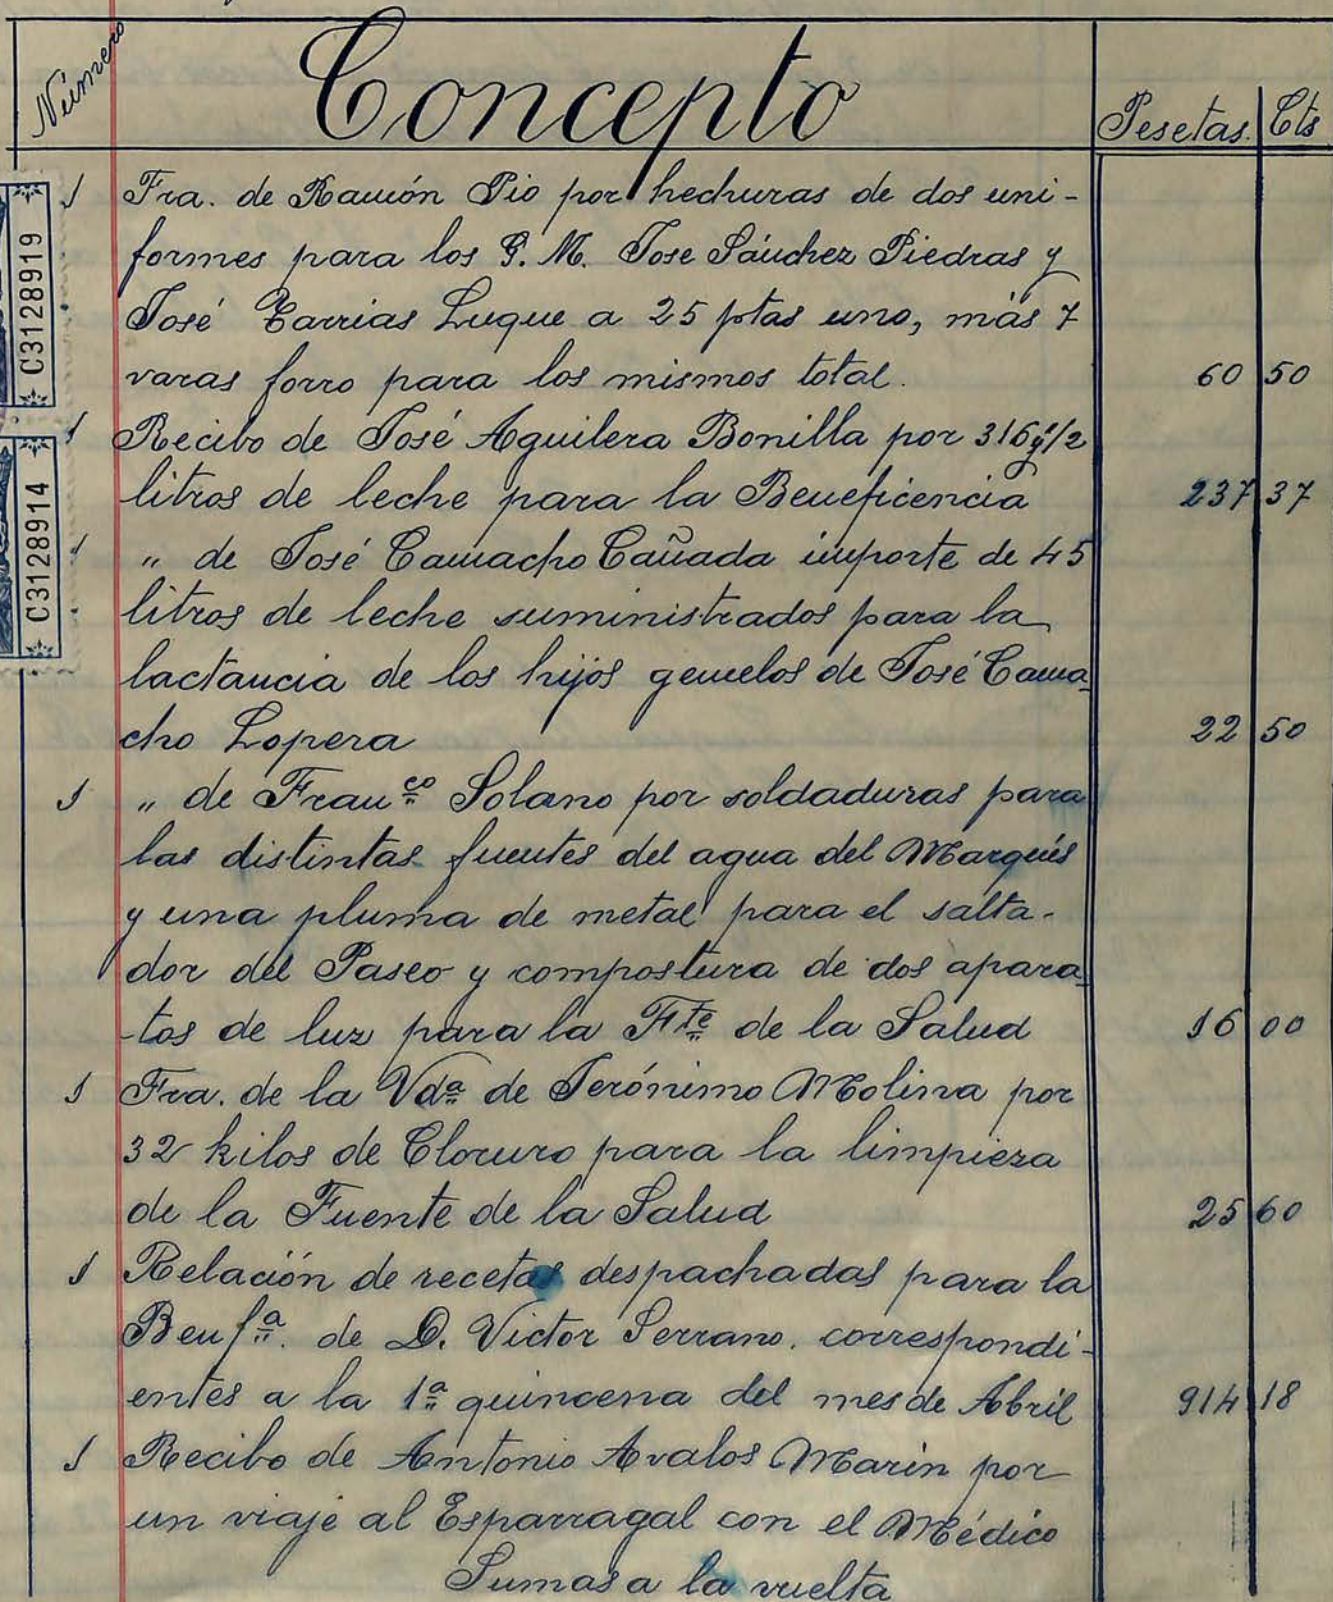 Número Concepto Pesetas. Cts
1 Fra. de Ramón Pio por hechuras de dos uni-
formes para los G. M. Jose Sánchez Piedras y
José Barrias Luque a 25 ptas uno, más 7
varas forro para los mismos total. 60 50
1 Recibo de José Aguilera Bonilla por 316 y 1/2
litros de leche para la Beneficencia 237 37
1 " de José Camacho Cañada importe de 45
litros de leche suministrados para la
lactancia de los hijos gemelos de José Cama-
cho Lopera 22 50
1 " de Franco Solano por soldaduras para
las distintas fuentes del agua del Marqués
y una pluma de metal para el salta-
dor del Paseo y compostura de dos apara-
tos de luz para la Fte de la Salud 16 00
1 Fra. de la Vda de Jerónimo Molina por
32 kilos de Cloruro para la limpieza
de la Fuente de la Salud 25 60
1 Relación de recetas despachadas para la
Benfa. de D. Victor Serrano. correspondi-
entes a la 1ª quincena del mes de Abril 914 18
1 Recibo de Antonio Avalos Marin por
un viaje al Esparragal con el Médico
Sumas a la vuelta
C3128919
C3128914